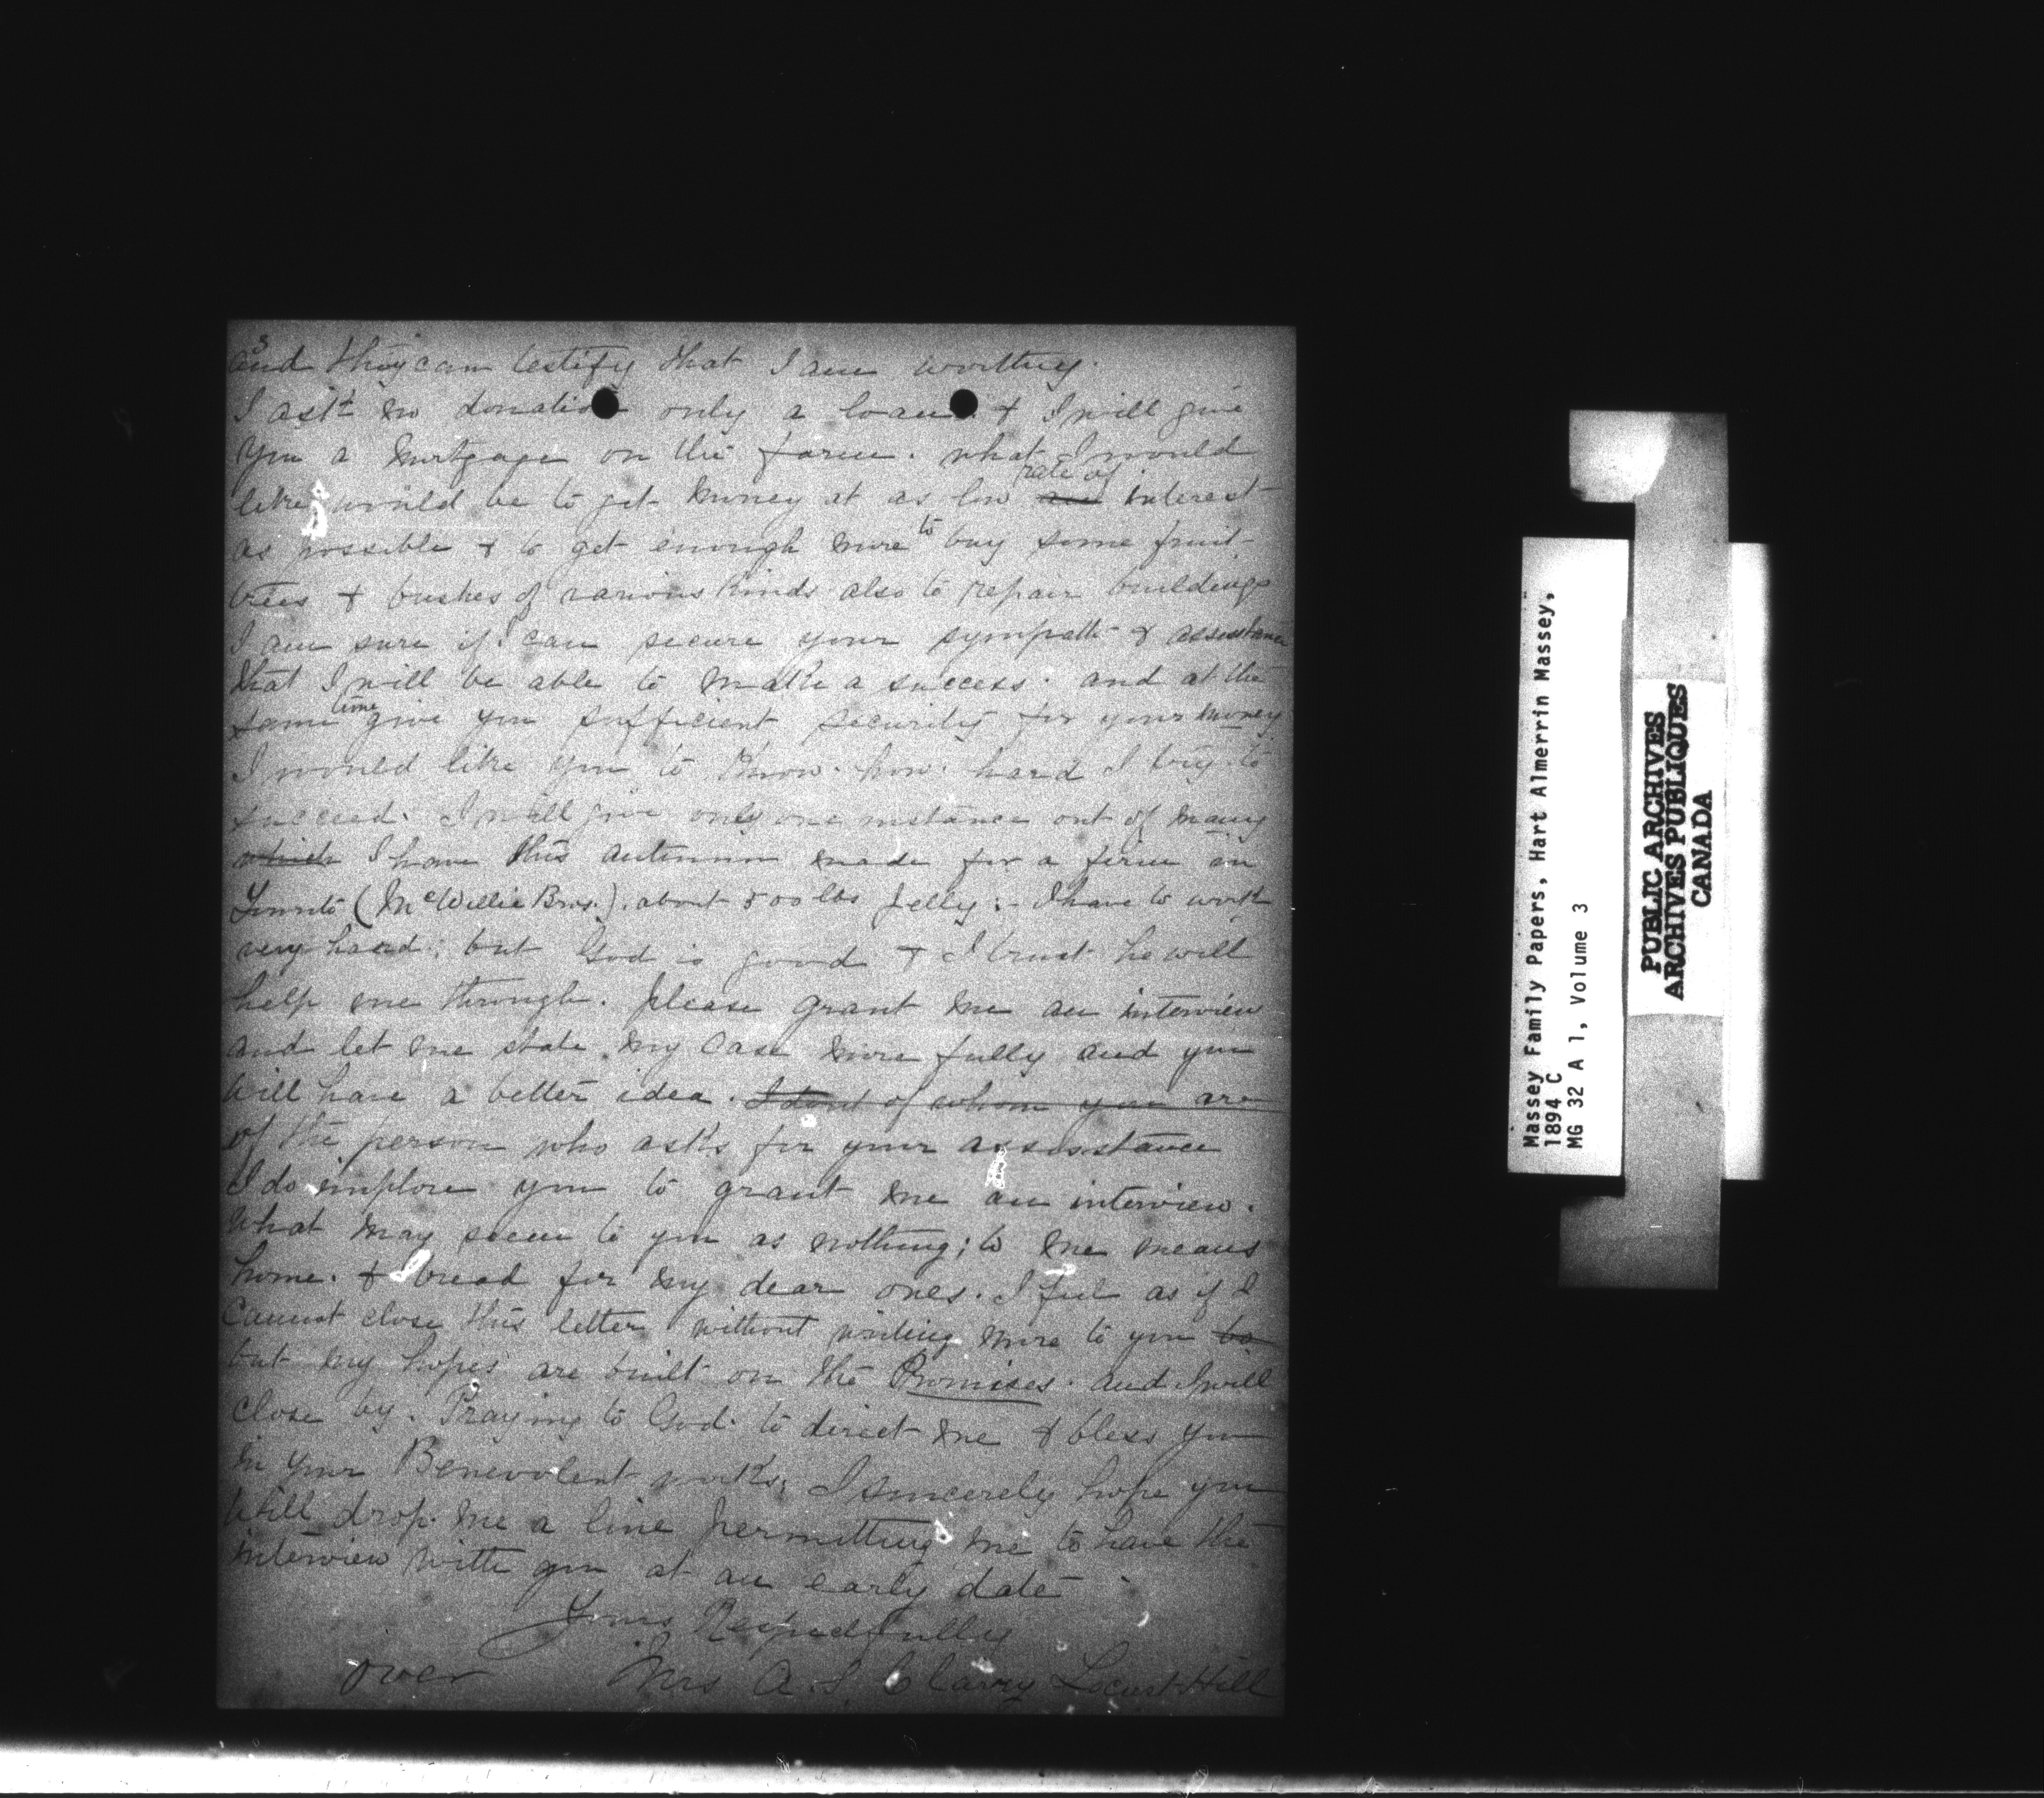 3
and they can testify that I am worthy.
I ask no donation only a loan & I will give
you a mortgage on the farm. what I would
like would be to get money at as low rate of interest
as possible & to get enough more to buy some fruit
trees & bushes of various kinds also to repair buildings
I am sure if I can secure your sympath & assistance
that I will be able to make a success. and at the
same time give you sufficient security for your money
I would like you to know. how. hard I try to
succeed. I will give only one instance out of many
which I have this autumn made for a firm in
Toronto (McWillie Bros.). about 500 lbs Jelly. I have to work
very hard; but God is good & I trust he will
help me through. Please grant me an interview
and let me state my case more fully and you
will have a better idea. I dont of whom you are
of the person who asks for your assisstance
I do implore you to grant me an interview.
What may seem to you as nothing; to me means
home. & bread for my dear ones. I feel as if I
cannot close this letter without writing more to you
but my hopes are built on the Promises. and I will
close by. Praying to God. to direct me & bless you
in your Benevolent works, I sincerely hope you
will drop me a line permitting me to have the
interview with you at an early date
Yours Respectfully
over Mrs A. S. Clarry Locust Hill
Massey Family Papers, Hart Almerrin Massey,
1894 C
MG 32 A 1, Volume 3
PUBLIC ARCHIVES
ARCHIVES PUBLIQUES
CANADA